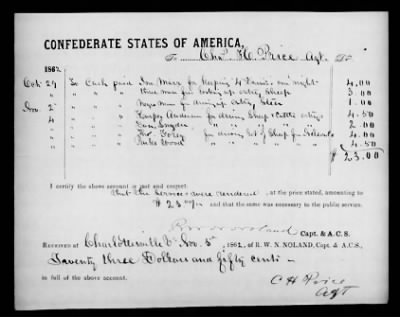 CONFEDERATE STATES OF AMERICA,
To Chas. H. Price Agt. Dr.
1862
Oct 29 To Cash paid for keeping one night 4.00
" " " three men for looking up Sheep 3.00
" " " Negro man for driving up Steer 1.00
Nov. 2 " " " Harper Anderson for driving Sheep & Cattle 4.50
4 " " " Snyder " " " 2.00
" " " Thos. Foley for driving lot of Sheep 4.50
" " " Wood " " " 4.50
$ 23.00
I certify the above account is just and correct.
that the services were rendered, at the price stated, amounting to
$ 23 and that the same was necessary to the public service.
R. W. N. Noland Capt. & A. C. S.
RECEIVED at Charlottesville Va Nov. 5th, 1862, of R. W. N. NOLAND, Capt. & A. C. S.,
three Dollars and fifty cents
in full of the above account.
C H Price
Agt